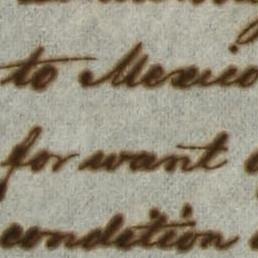 to Mexico
for want
condition